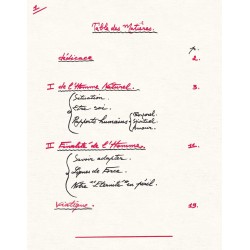 1.
Table des Matières.
p.
dédicace 2.
I de l'Homme Naturel. 3.
Situation.
Etre soi.
Rapports humains
Corporel
Spirituel
Amour.
II Finalité de l'Homme. 11.
Savoir adapter.
Lignes de Force.
Notre "Eternité" en péril.
19.